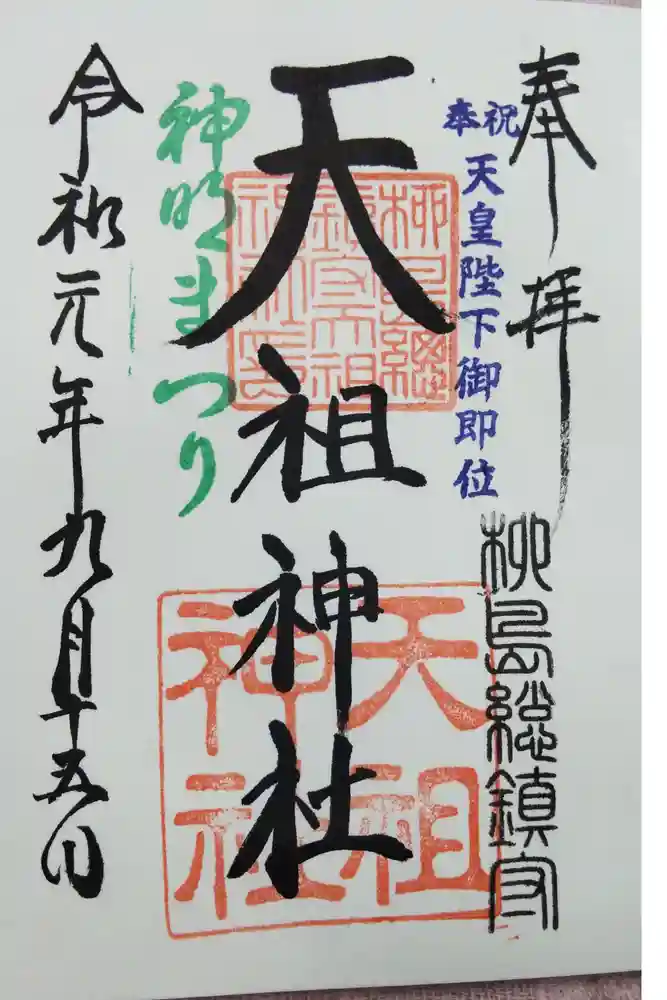 奉拝
奉祝
天皇陛下御即位
柳島総鎮守
天祖神社
柳島総
鎮守天祖
神社
天祖
神社
神明まつり
令和元年九月十五日